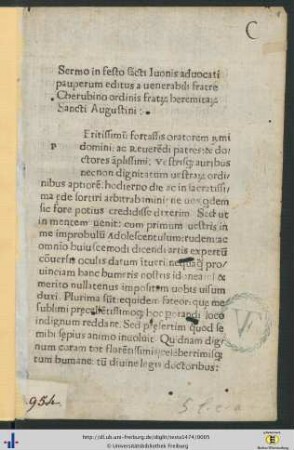 C
Sermo in festo sācti Juonis aduocati
pauperum editus a uenerabili fratre
Cherubino ordinis fratrꝝ heremitaꝝ
Sancti Augustini :
P Eritissimū fortassis oratorem
domini: ac reuerēdi patres: te do/
ctores āplissimi: uestrisqꝫ auribus
nec non dignitatum uestraꝝ ordi
nibus aptiorē: hodierno die ac in sacratissi
ma ede sortiri arbitrabamini: ne uos qdem
sic fore potius credidisse dixerim Sed ut
in mentem uenit: cum primum uestris in
me improbulū Adolescentulum: rudem: ac
omnio huiuscemodi dicendi artis expertū
cōuersis oculis datum iturri: nequaqꝫ pro/
uinciam hanc humeris nostris idoneam &
merito nullatenus impositem uobis uisum
duti. Plurima sūt: equidem fateor: que me
sublimi preclarissimoqꝫ hoc perandi loco
indignum reddant. Sed presertim quod se
mihi sepius animo inuoluit Quidnam dignum
coram tot florētissimisqꝫ celeberrimisqꝫ
tum humane: tū diuine legis doctoribus:
954
http://dl.ub.uni-freiburg.de/diglit/texta1474/0005
© Universitätsbibliothek Freiburg